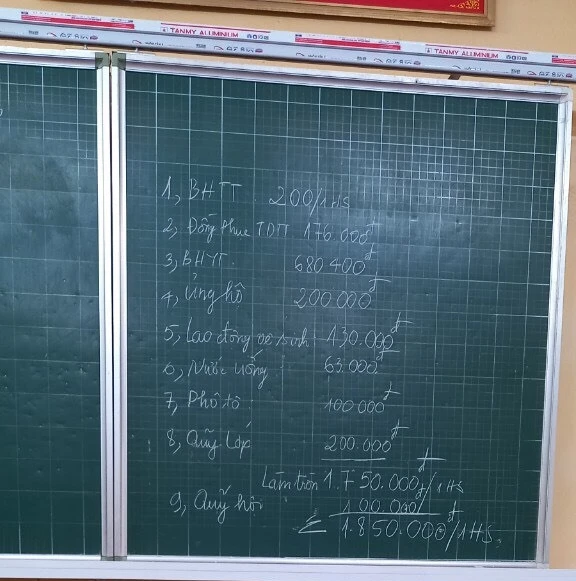 TANMY ALUMINIUM
TANMY ALUMINIUM
1, BHTT 200/1HS
2, Đồng phục TDTT 176.000đ
3, BHYT. 680.400đ
4, Ủng hộ 200.000đ
5, Lao động vệ sinh 130.000đ
6, Nước uống 63.000đ
7, Phôtô 100.000đ
8, Quỹ lớp 200.000đ
Làm tròn 1.750.000đ/1HS
9, Quỹ hội 100.000đ
Σ 1.850.000đ/1HS.